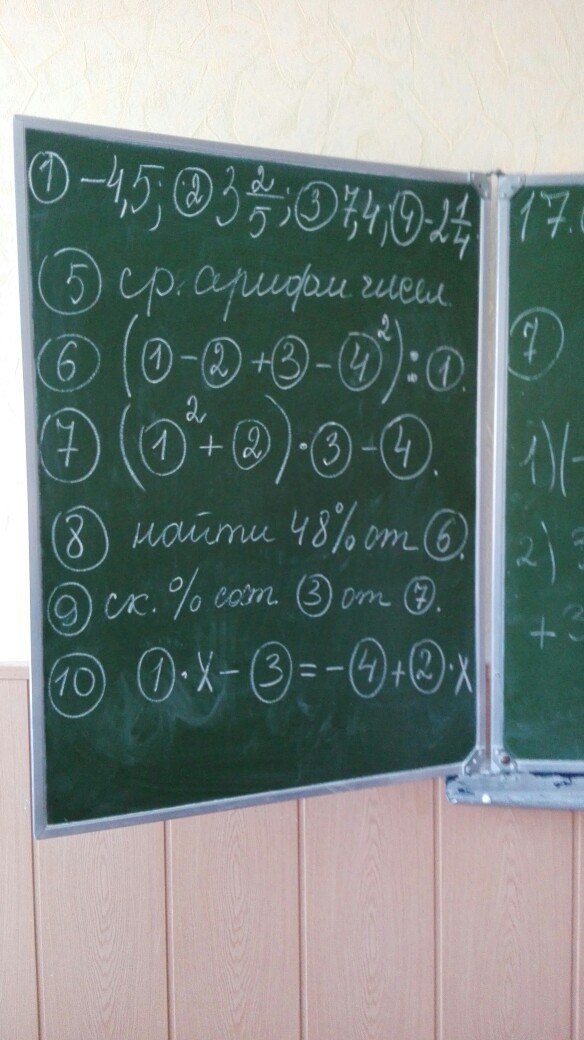 ① -4,5; ② 3 2/5; ③ 7,4; ④ -2 1/4.
⑤ ср. арифм чисел.
⑥ (① - ② + ③ - ④²) : ①.
⑦ (①² + ②) · ③ - ④.
⑧ найти 48% от ⑥.
⑨ ск. % сост. ③ от ⑦.
⑩ ① · x - ③ = -④ + ② · x
17.
⑦
1) (-
2) 3
+ 3